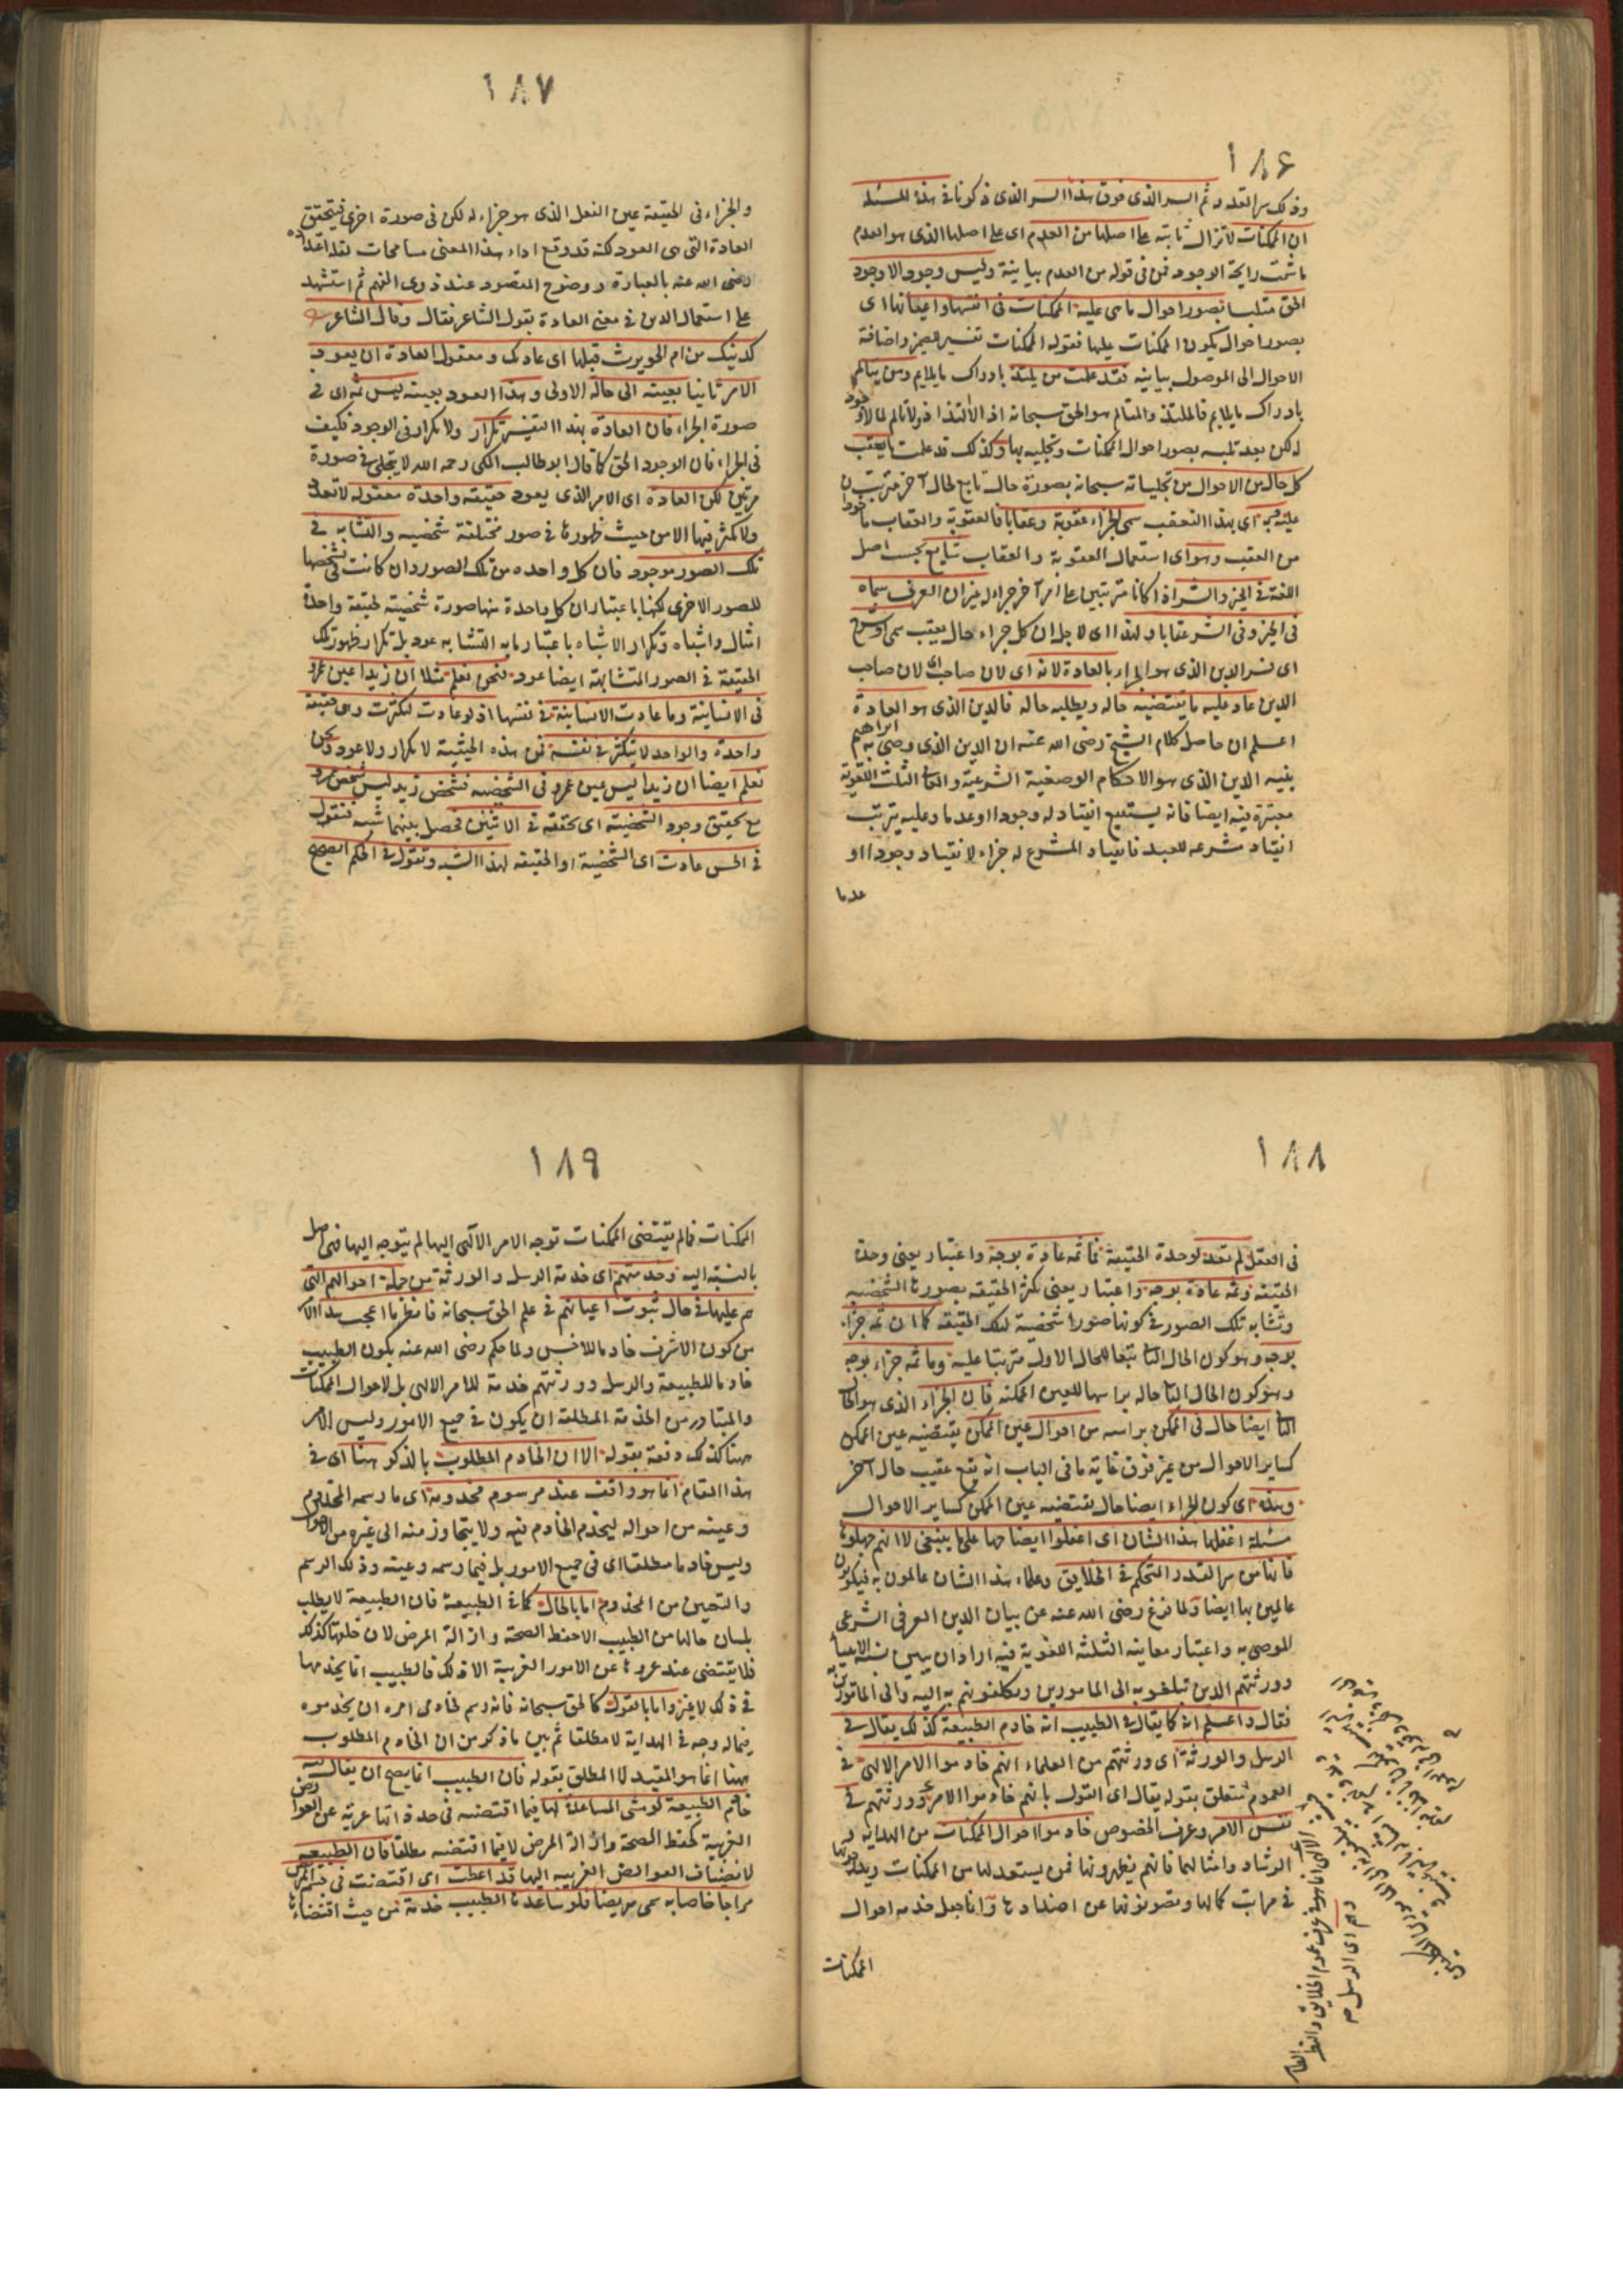 ١٨٦
وذلك سر القدر وثم السر الذى فوق هذا السر الذى ذكرنا فى هذه المسئلة
ان الممكنات لا تزال ثابتة على اصلها من العدم اى على اصلها الذى هو العدم
ما شمت رايحة الوجود فمن فى قوله من العدم بيانية وليس وجود الا وجود
الحق متلبسا بصور احوال ما هى عليه الممكنات فى انفسها واعيانها اى
بصور احوال يكون الممكنات عليها فقوله الممكنات تفسير للضمير واضافة
الاحوال الى الموصول بيانيه فقد علمت من يلتذ بادراك ما يلايم ومن يتالم
بادراك ما يلايم فالملتذ والمتالم هو الحق سبحانه اذ الالتذاذ والتالم لما لا وجود
له لكن بعد تلبسه بصور احوال الممكنات وتجليه بها وكذلك قد علمت ما يعقب
كل حال من الاحوال من تجلياته سبحانه بصورة حال تابع لحال آخر مترتب
عليه وبه اى بهذا التعقب سمى الجزاء عقوبة وعقابا فالعقوبة والعقاب ماخوذان
من العقب وهو اى استعمال العقوبة والعقاب شايع بحسب اصل
اللغة فى الخير والشر اذا كانا مترتبين على امر آخر جزاء له غير ان العرف سماه
فى الخير وفى الشر عقابا ولهذا اى لاجل ان كل جزاء حال يعقب سمى او شرح
اى فسر الدين الذى هو الجزاء بالعادة لانه اى لان صاحب اى لان صاحب
الدين عاد عليه ما يقتضيه حاله ويطلبه حاله فالدين الذى هو العادة
اعلم ان حاصل كلام الشيخ رضى الله عنه ان الدين الذى وصى به ابراهيم
بنيه الدين الذى هو الاحكام الوضعية الشرعية والمعانى الثلث اللغوية
معتبرة فيه ايضا فانه يستتبع انقياد له وجودا او عدما وعليه يترتب
انقياد شرعه للعبد فانقياد المشرع له جزاء لانقياد وجودا او
عدما
١٨٧
والجزاء فى الحقيقة عين الفعل الذى هو جزاء له لكن فى صورة اخرى فيتحقق
العادة التى هى العود لكنه قد وقع اداء هذا المعنى مسامحات لقلة اعتداده
رضى الله عنه بالعبارة ووضوح المقصود عند ذوى الفهم ثم استشهد
على استعمال الدين فى معنى العادة بقول الشاعر فقال وقال الشاعر
كدينك من ام الحويرث قبلها اى عادتك ومعقول العادة ان يعود
الامر ثانيا بعينه الى حاله الاولى وهذا العود بعينه ليس ثم اى فى
صورة الجزاء فان العادة بهذا التفسير تكرار ولا تكرار فى الوجود فكيف
فى الجزاء فان الوجود الحق كما قال ابو طالب المكى رحمه الله لا يتجلى فى صورة
مرتين لكن العادة اى الامر الذى يعود حقيقة واحدة معقوله لا تعدد
ولا تكثر فيها الا من حيث ظهورها فى صور مختلفة شخصيه والتشابه فى
تلك الصور موجود فان كل واحده من تلك الصور وان كانت فى تشخصها
للصور الاخرى لكنها باعتبار ان كل واحدة منها صورة شخصية لحقيقة واحدة
امثال واشباه وتكرار الاشباه باعتبار ما به التشابه عود بل تكرار ظهور تلك
الحقيقة فى الصور المتشابهة ايضا عود فنحن نعلم مثلا ان زيدا عين عمرو
فى الانسانية وما عادت الانسانية فى نفسها اذ لو عادت لتكثرت وهى حقيقة
واحدة والواحد لا يتكثر فى نفسه فمن هذه الحيثية لا تكرار ولا عود ونحن
نعلم ايضا ان زيدا ليس عين عمرو فى الشخصيه فشخص زيد ليس شخص عمرو
مع تحقيق وجود الشخصية اى تحققه فى الاثنين فحصل بينهما شبه فنقول
فى الحس عادت اى الشخصية او الحقيقة لهذا الشبه ونقول فى الحكم الصحيح
١٨٨
فى العقل لم تعد لوحدة الحقيقة فما ثمه عادة بوجه واعتبار يعنى وحدة
الحقيقة وثمه عادة بوجه واعتبار يعنى تكثر الحقيقة بصورها الشخصيه
وتشابه تلك الصور فى كونها صورا شخصية لتلك الحقيقة كما ان ثمه جزاء
بوجه وهو كون الحال الثانى تبعا للحال الاول مترتبا عليه وما ثمه جزاء بوجه
وهو كون الحال الثانى حاله براسها للعين الممكنه فان الجزاء الذى هو الحال
الثانى ايضا حال فى الممكن براسه من احوال عين الممكن يقتضيه عين الممكن
كساير الاحوال من غير فرق غاية ما فى الباب انه يقع عقيب حال آخر
وهذه اى كون الجزاء ايضا حال يقتضيه عين الممكن كساير الاحوال
مسئلة اغفلها هذا الشان اى اغفلوا ايضاحها على ما ينبغى لا انهم جهلوها
فانها من سر القدر المتحكم فى الخلايق وعلماء هذا الشان عالمون به فيكونون
عالمين بها ايضا ولما فرغ رضى الله عنه عن بيان الدين العرفى الشرعى
الموصى به واعتبار معانيه الثلثة اللغوية فيه اراد ان يبين نسبة الانبياء
وورثتهم الذين تبلغونه الى المامورين ويكلفونهم به اليه والى المامورين به
فقال واعلم انه كما يقال فى الطبيب انه خادم الطبيعة كذلك يقال فى
الرسل والورثة اى ورثتهم من العلماء انهم خادموا الامر الالهى فى
العموم متعلق بقوله يقال اى القول بانهم خادموا الامر وورثتهم فى
نفس الامر وعرف الخصوص خادموا احوال الممكنات من الهداية و
الرشاد وامثالها فانهم يظهرونها فمن يستعد لها من الممكنات
فى مراتب كمالها ويصونونها عن اضدادها وانما جعل خدمه احوال
الممكنات
وهم اى الرسل صح
١٨٩
الممكنات فما لم يقتضى الممكنات توجه الامر الالهى اليها لم يتوجه اليها فهى اصل
بالنسبة اليه وخدمتهم اى خدمة الرسل والورثة من جملة احوالهم التى
هم عليها فى حال ثبوت اعيانهم فى علم الحق سبحانه فانظر ما اعجب هذا الامر
من كون الاشرف خادما للاخس ولما حكم رضى الله عنه بكون الطبيب
خادما للطبيعة والرسل وورثتهم خدمة للامر الالهى بل لاحوال الممكنات
والمتبادر من الخدمة المطلقة ان يكون فى جميع الامور وليس الامر
ههنا كذلك دفعه بقوله الا ان الخادم المطلوب بالذكر هنا اى فى
هذا المقام انما هو واقف عند مرسوم مخدومه اى ما رسمه المخدوم
وعينه من احواله ليخدم الخادم فيه ولا يتجاوز منه الى غيره من الاحوال
وليس خادما مطلقا اى فى جميع الامور بل فيما رسمه وعينه وذلك الرسم
والتعيين من المخدوم اما بالحال كما فى الطبيعة فان الطبيعة لا يطلب
بلسان حالها من الطبيب الا حفظ الصحة وازالة المرض لان خلقتها كذلك
فلا يقتضى عند عروها عن الامور الغريبة الا ذلك فالطبيب انما يخدمها
فى ذلك لا غير واما بالقول كالحق سبحانه فانه رسم لخادمى امره ان يخدموه
فيما له وجه فى الهداية لا مطلقا ثم بين ما ذكر من ان الخادم المطلوب
ههنا انما هو المقيد لا المطلق بقوله فان الطبيب انما يصح ان يقال فيه
خادم الطبيعة لو مشى المساعدة لها فيما اقتضته فى حدة انها عرية عن العوارض
الغريبة كحفظ الصحة وازالة المرض لا فيما اقتضته مطلقا فان الطبيعه
لانضياف العوارض الغريبه اليها قد اعطت اى اقتضت فى جسم المريض
مزاجا خاصا به سمى مريضا فلو ساعدها الطبيب خدمة من حيث اقتضاءها